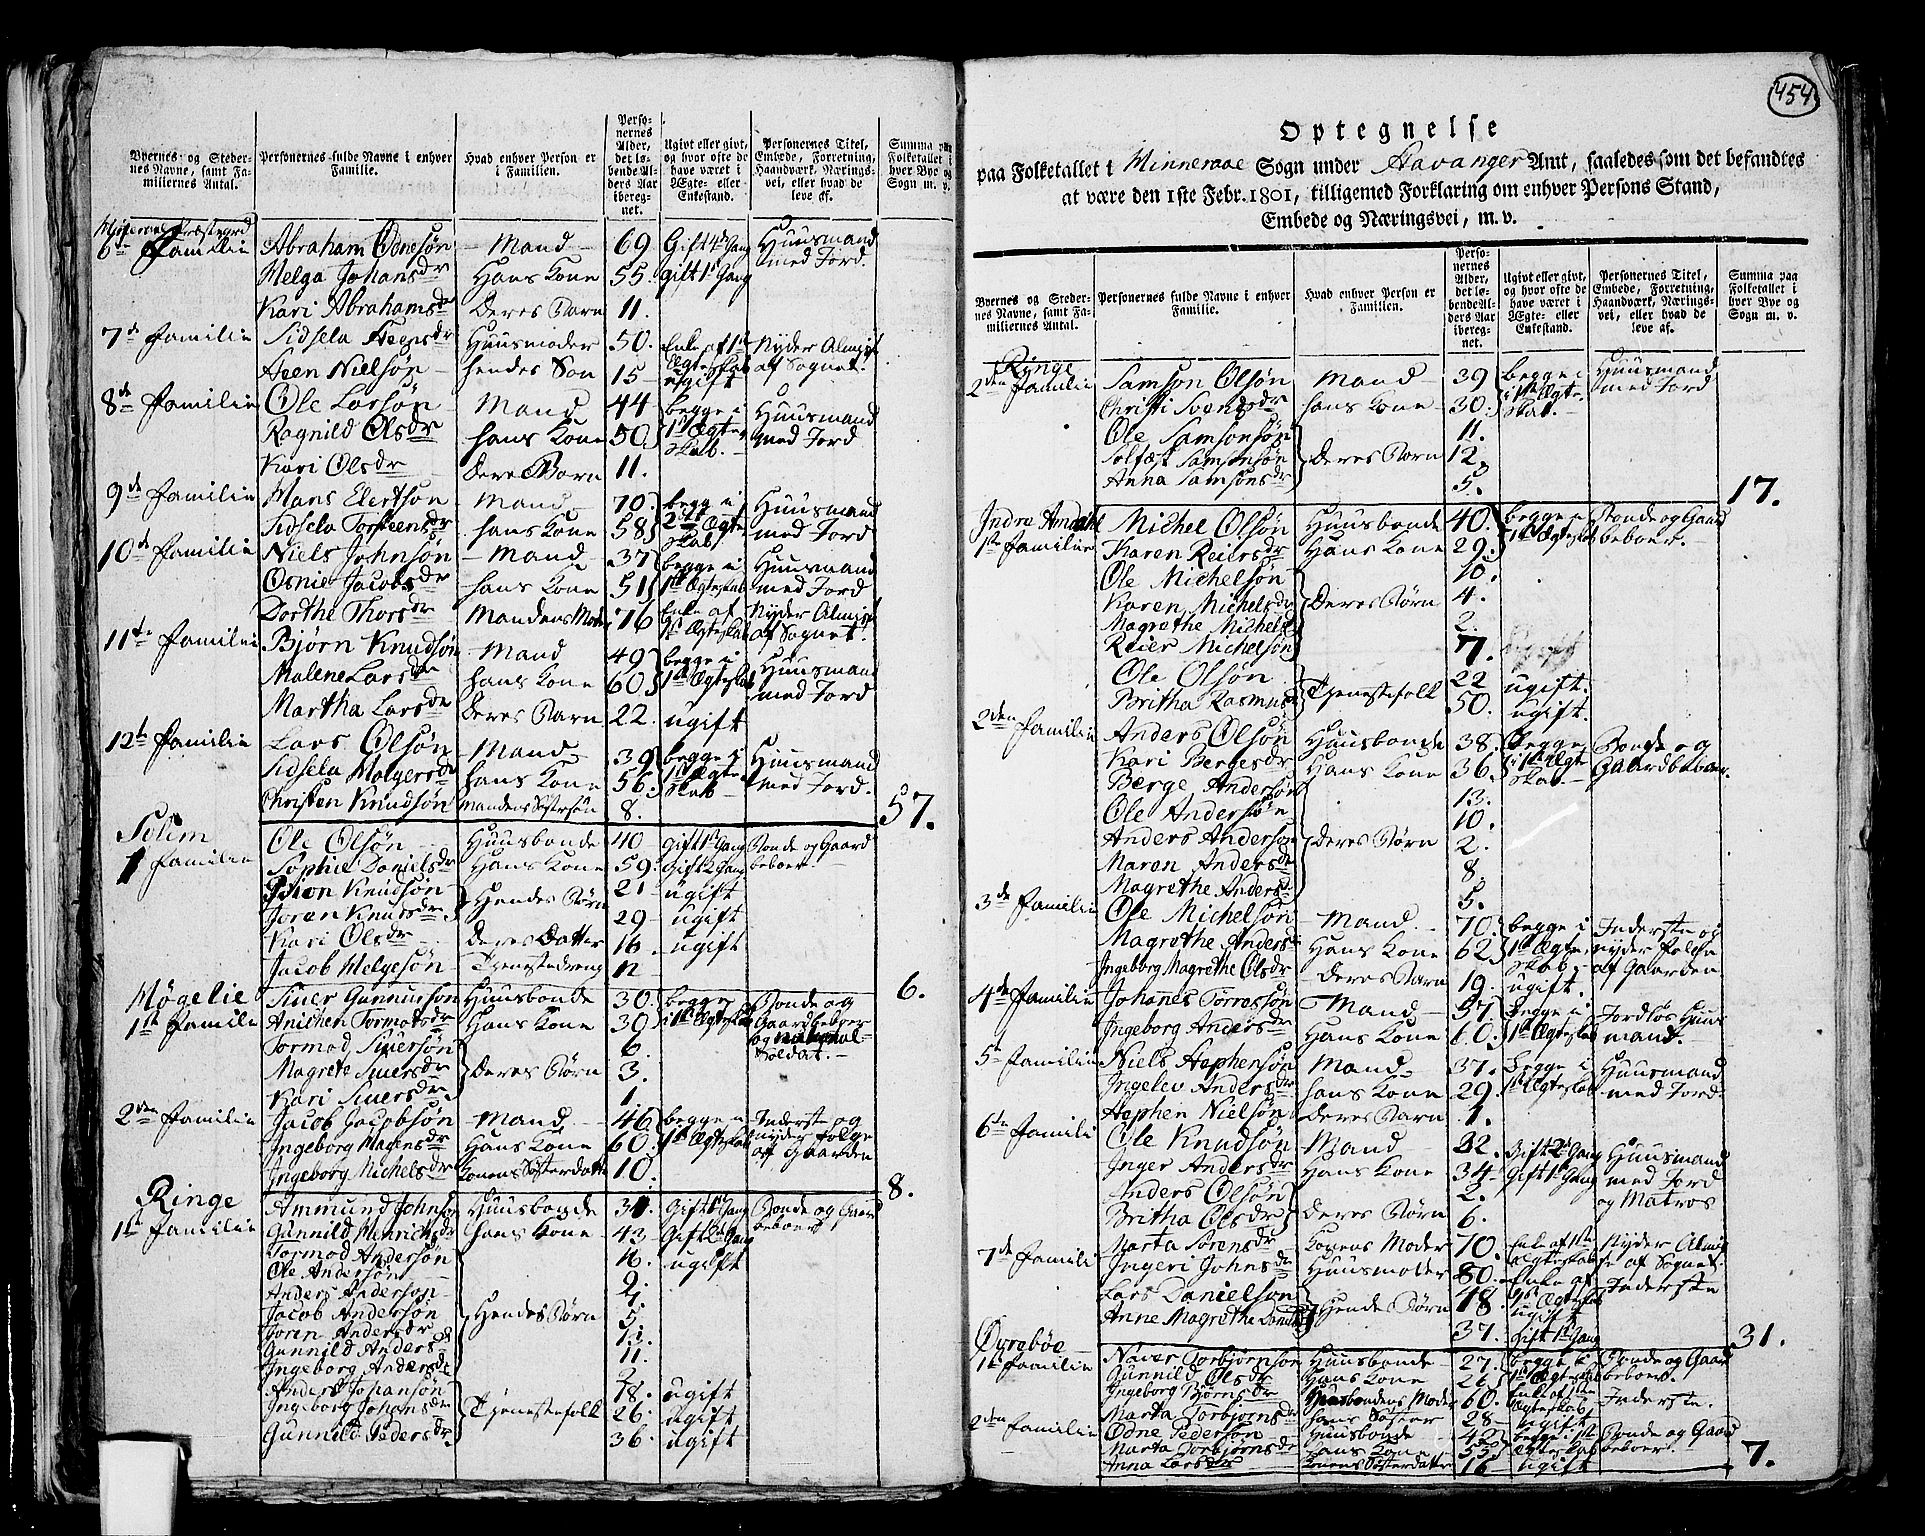 Byernes og Steder-nes Navne, samt Fa-miliernes Antal.
Personernes fulde Navne i enhver Familie.
Hvad enhver Person er i Familien.
Perso-nernes Alder, det lø-bende Al-ders Aar iberegnet.
Ugivt eller givt, og hvor ofte de have været i Ægte- eller Enkestand.
Personernes Titel, Embede, Forretning, Haandværk, Nærings-vei, eller hvad de leve af.
Summa paa Folketallet i hver Bye og Sogn m. v.
6te Familie Abraham Odnesøn Mand 69 Gift 4de Gang Huusmand med Jord.
Helga Johansdr Hans Kone 55. Gift 1ste Gang
Kari Abrahamsdr Deres Barn 11.
7de Familie Sidsela Steensdr Huusmoder 50. Enke af 1ste Ægteskab Nyder Almisse af Sognet.
Steen Nielsøn hendes Søn 15 ugift
8de Familie Ole Larsøn Mand 44 begge i 1ste Ægteskab. Huusmand med Jord
Ragnild Olsdr hans Kone 50.
Kari Olsdr Deres Barn 11.
9de Familie Hans Elertsøn Mand 70. begge i 2det Ægteskab Huusmand med Jord
Sidsela Torsteensdr hans Kone 58
10de Familie Niels Johnsøn Mand 37 begge i 1ste Ægteskab Huusmand med Jord
Osnie Jacobsdr hans Kone 51
Dorthe Thorsdr Mandens Moder 76 Enke af 1ste Ægteskab Nyder Almisse af Sognet.
11te Familie Bjørn Knudsøn Mand 49 begge i 1ste Ægteskab Huusmand med Jord
Malene Larsdr hans Kone 60
Martha Larsdr Deres Barn 22. ugift
12te Familie Lars Olsøn Mand 39 begge i 1ste Ægteskab Huusmand med Jord.
Sidsela Holgersdr hans Kone 56.
Christen Knudsøn Mandens Søstersøn 8.
57.
Solim
1 Familie Ole Olsøn Huusbonde 40 Gift 1ste Gang Bonde og Gaardbeboer
Sophie Danielsdr Hans Kone 59. Gift 2 Gang
Knudsøn Hendes Børn 21 ugift
Joren Knudsdr 29 ugift
Kari Olsdr Deres Datter 16. ugift
Jacob Helgesøn Tienestedreng 12
6.
Møgelie
1ste Familie Siver Gunnarsøn Huusbonde 30. begge i 1ste Ægteskab Bonde og Gaardbeboer og National Soldat.
Anichen Tormodsdr Hans Kone 30
Tormod Siversøn Deres Børn 6.
Magrete Siversdr 3.
Kari Siversdr 1.
2den Familie Jacob Jacobsøn Mand 46. begge i 1ste Ægteskab Inderst og nyder Følge af Gaarden
Ingeborg Hansdr Hans Kone 60.
Ingeborg Michelsdr Konens Søsterdatter 10.
8.
Ringe
1ste Familie Ammund Johnsøn Huusbonde 31. Gift 1ste Gang Bonde og Gaardbeboer
Gunnild Henrichsdr hans Kone 43 Gift 2den Gang
Tormod Andersøn Hendes Børn 16. ugift
Ole Andersøn
Anders Andersøn
Jacob Andersøn 5.
Joren Andersdr
Gunnild Andersdr 11.
Ingeborg Andersdr 2.
Anders Johansøn Tjenestefolk 18. ugift
Ingeborg Johansdr 26. ugift
Gunnild Pedersdr 36. ugift
454
Optegnelse
paa Folketallet i Minneraae Sogn under Stavanger Amt, saaledes som det befandtes
at være den 1ste Febr. 1801, tilligemed Forklaring om enhver Persons Stand,
Embede og Næringsvei, m. v.
Byernes og Steder-nes Navne, samt Fa-miliernes Antal.
Personernes fulde Navne i enhver Familie.
Hvad enhver Person er i Familien.
Perso-nernes Alder, det lø-bende Al-ders Aar iberegnet.
Ugivt eller givt, og hvor ofte de have været i Ægte- eller Enkestand.
Personernes Titel, Embede, Forretning, Haandværk, Nærings-vei, eller hvad de leve af.
Summa paa Folketallet i hver Bye og Sogn m. v.
Rynge
2den Familie Samson Olsøn Mand 39 begge i 1ste Ægteskab. Huusmand med Jord
Christi Svendsdr hans Kone 30.
Ole Samsonsøn Deres Børn 11.
Solfæst Samsonsøn 12.
Anna Samsonsdr 5.
17.
Indre Amdahl
1ste Familie Michel Olsøn Huusbonde 40. begge i 1ste Ægteskab Bonde og Gaardbeboer.
Karen Reiersdr Hans Kone 29.
Ole Michelsøn Deres Børn 10.
Karen Michelsdr 4.
Magrethe Michelsdr 2.
Reier Michelsøn 7.
Ole Olsøn Tjenestefolk 22 ugift.
Britha Rasmusdr 50. ugift.
2den Familie Anders Olsøn Huusbonde 38. Begge i 1ste Ægteskab Bonde og Gaardbeboer.
Kari Bergesdr Hans Kone 36.
Berge Andersøn Deres Børn 13.
Ole Andersøn 10.
Anders Andersøn 2.
Maren Andersdr 8.
Magrethe Andersdr 5.
3de Familie Ole Michelsøn Mand. 70. begge i 1ste Ægteskab Inderste og nyder Følge af Gaarden
Magrethe Andersdr Hans Kone 62
Ingeborg Magrethe Olsdr Deres Barn 19. ugift.
4de Familie Johanes Torresøn Mand 57. Begge i 1ste Ægteskab Jordløs Huusmand.
Ingeborg Andersdr Hans Kone 60.
5te Familie Niels Stephensøn Mand 37. Begge i 1ste Ægteskab Huusmand med Jord.
Ingelev Andersdr hans Kone 29.
Stephen Nielsøn Deres Barn 1.
6te Familie Ole Knudsøn Mand 32. Gift 2den Gang Huusmand med Jord og Matros
Inger Andersdr Hans Kone 34 Gift 1ste Gang
Anders Olsøn Deres Børn 2.
Britha Olsdr 6.
Marta Sørensdr Konens Moder 70. Enke af 1ste Ægteskab Nyder Almisse af Sognet.
7de Familie Ingeri Johnsdr Huusmoder 80. Enke af 1ste Ægteskab Inderste
Lars Danielsøn Hendes Børn 48. ugift
Anne Magrethe Danielsdr 37. Gift 1ste Gang
31.
Øvrebøe
1ste Familie Torbjørnsøn Huusbonde 27. begge i 1ste Ægteskab Bonde og Gaardbeboer.
Gunnild Olsdr Hans Kone 26
Ingeborg Bjørnsdr Huusbondens Moder 60. Enke af 1ste Ægteskab Inderste.
Marta Torbjørnsdr hans Søster 28 ugift
2den Familie Odne Pedersøn Huusbonde 42 begge i 1ste Ægteskab Bonde og Gaardbeboer.
Marta Torbjørnsdr hans Kone 55
Anna Larsdr Konens Søsterdatter 16 ugift
7.